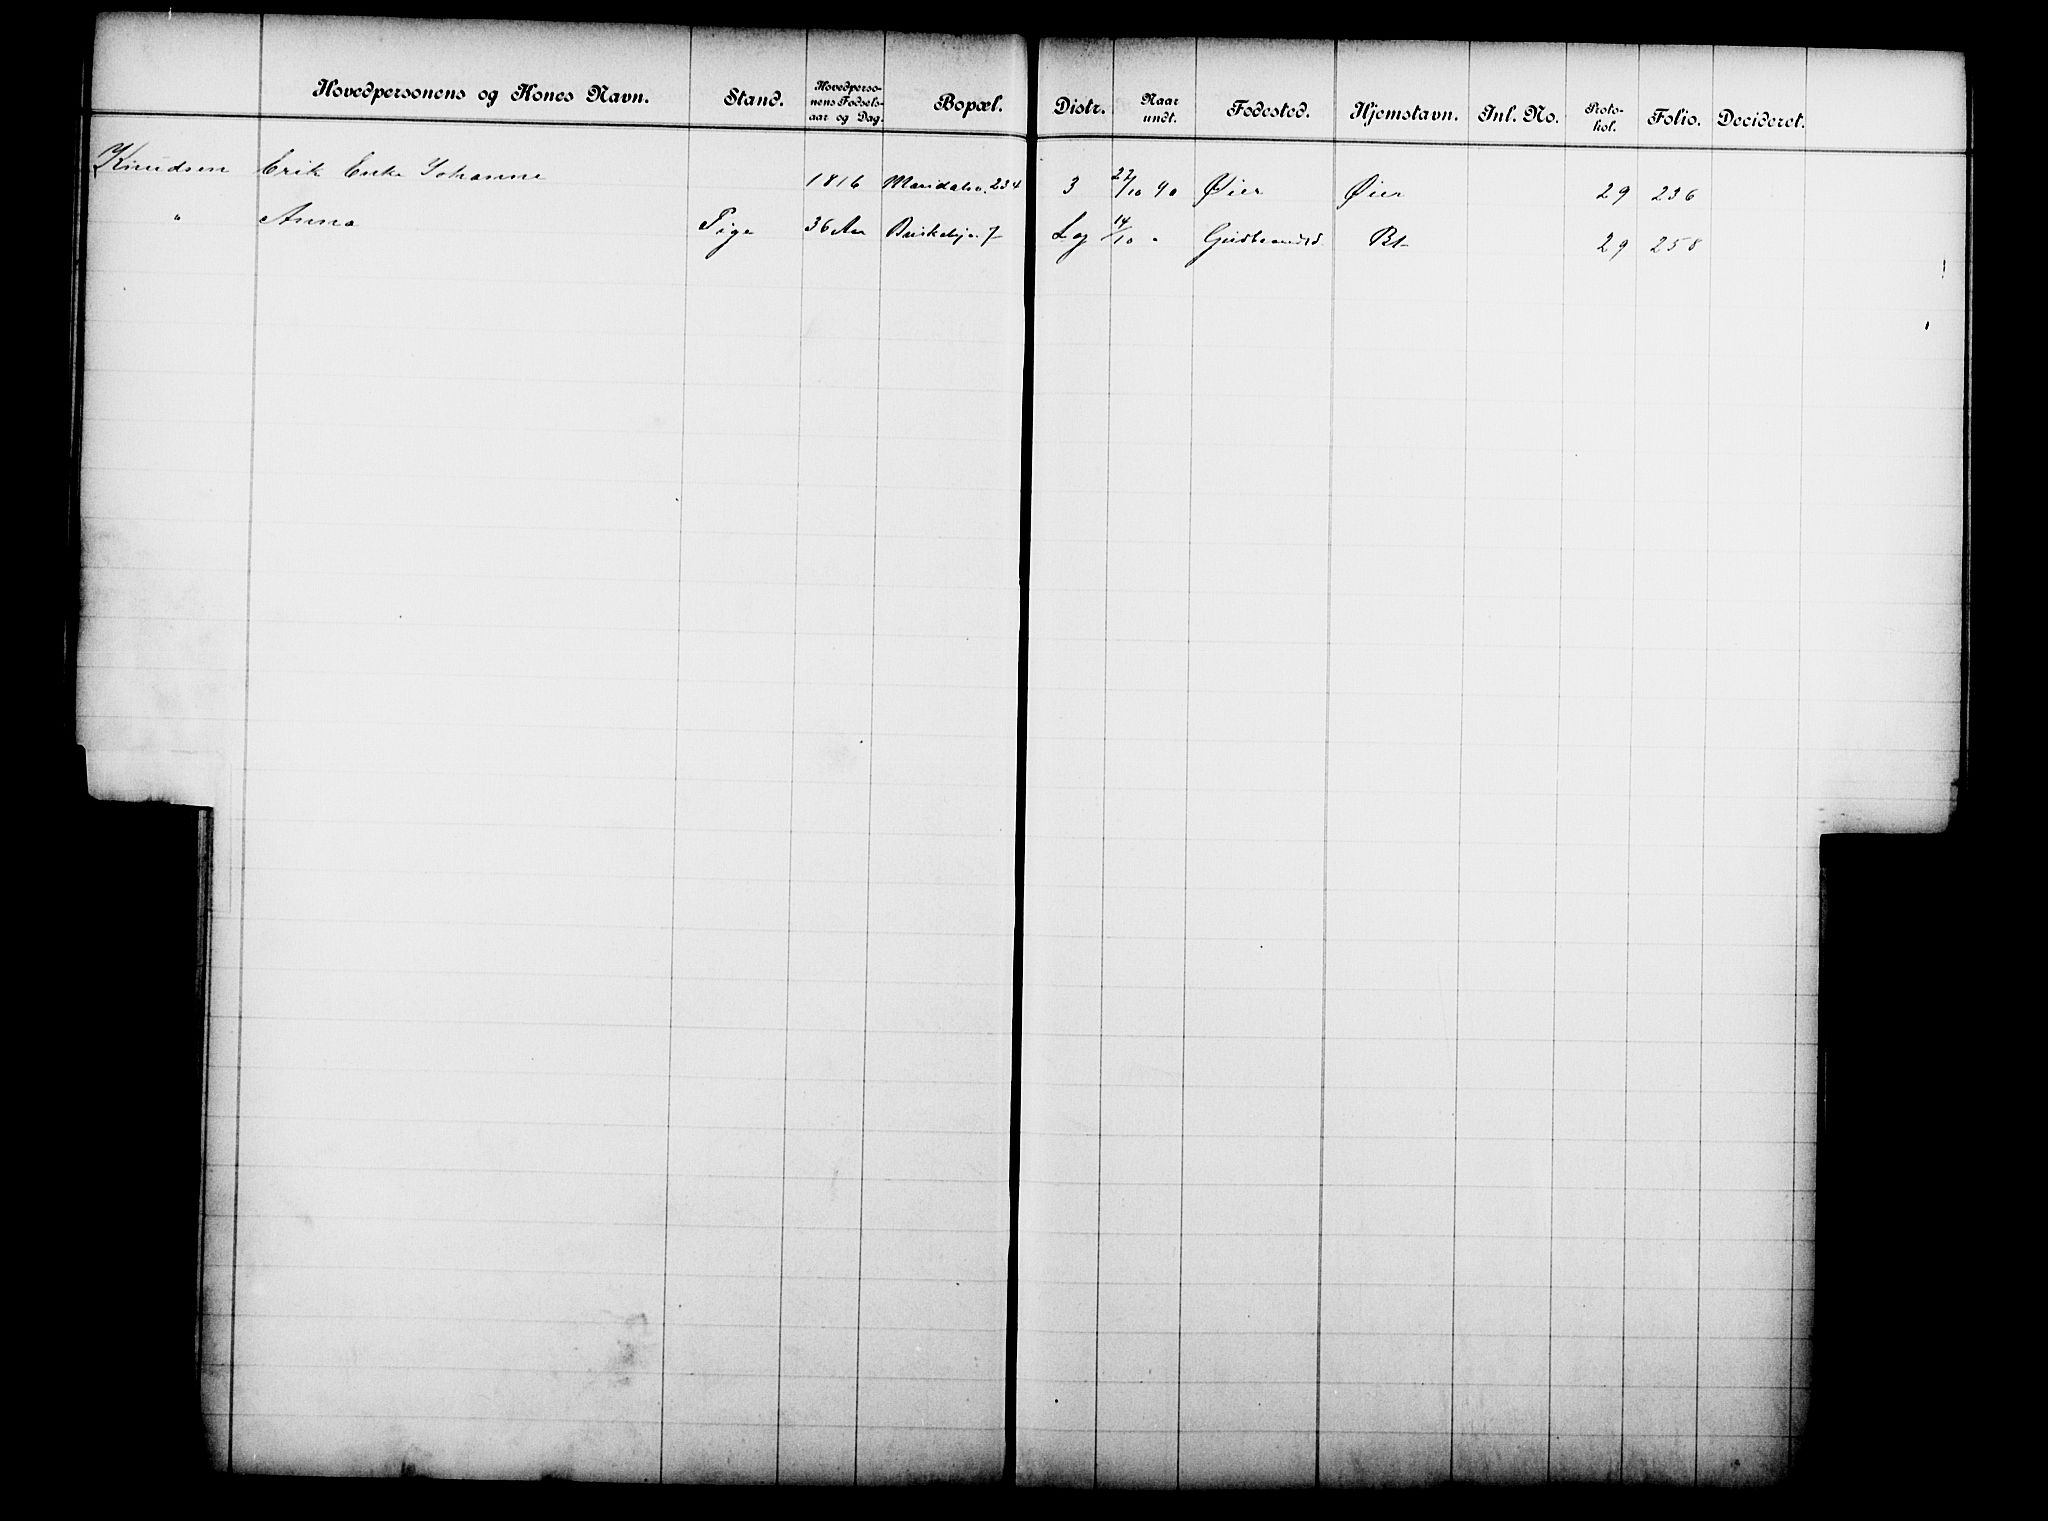 Hovedpersonens og Kones Navn. Stand. Hovedperso-nens Fødsels-aar og Dag. Bopæl. Distr. Naar undt. Fødested. Hjemstavn. Inl. No. Proto-kol. Folio. Decideret.
Knudsen Erik Enke Johanne 1816 Maridalsv. 234 3 22/10 90 Øier Øier 29 236
" Anna Pige 36 Aar Briskebyv. 7 Log 14/10 " Gudbrandsd. 29 258